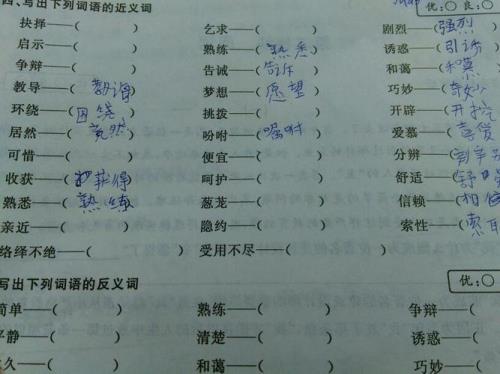 四、写出下列词语的近义词 优:○ 良:○
抉择——( ) 乞求——( ) 剧烈——(强烈
启示——( ) 熟练——(熟悉) 诱惑——(引诱
争辩——( ) 告诫——(告诉) 和蔼——(和
教导——(教诲) 梦想——(愿望) 巧妙——(奇妙
环绕——(围绕) 挑拨——( ) 开辟——(开挖
居然——(竟然) 吩咐——(嘱咐) 爱慕——(喜爱
可惜——( ) 便宜——( ) 分辨——(
收获——( 获得) 呵护——( ) 舒适——(舒
熟悉——(熟练) 葱茏——( ) 信赖——(相信
亲近——( ) 隐约——( ) 索性——(索
络绎不绝——( ) 受用不尽——( )
写出下列词语的反义词 优:○
简单——( ) 熟练——( ) 争辩——(
平静——( ) 清楚——( ) 诱惑——(
久——( ) 和蔼——( ) 巧妙——(